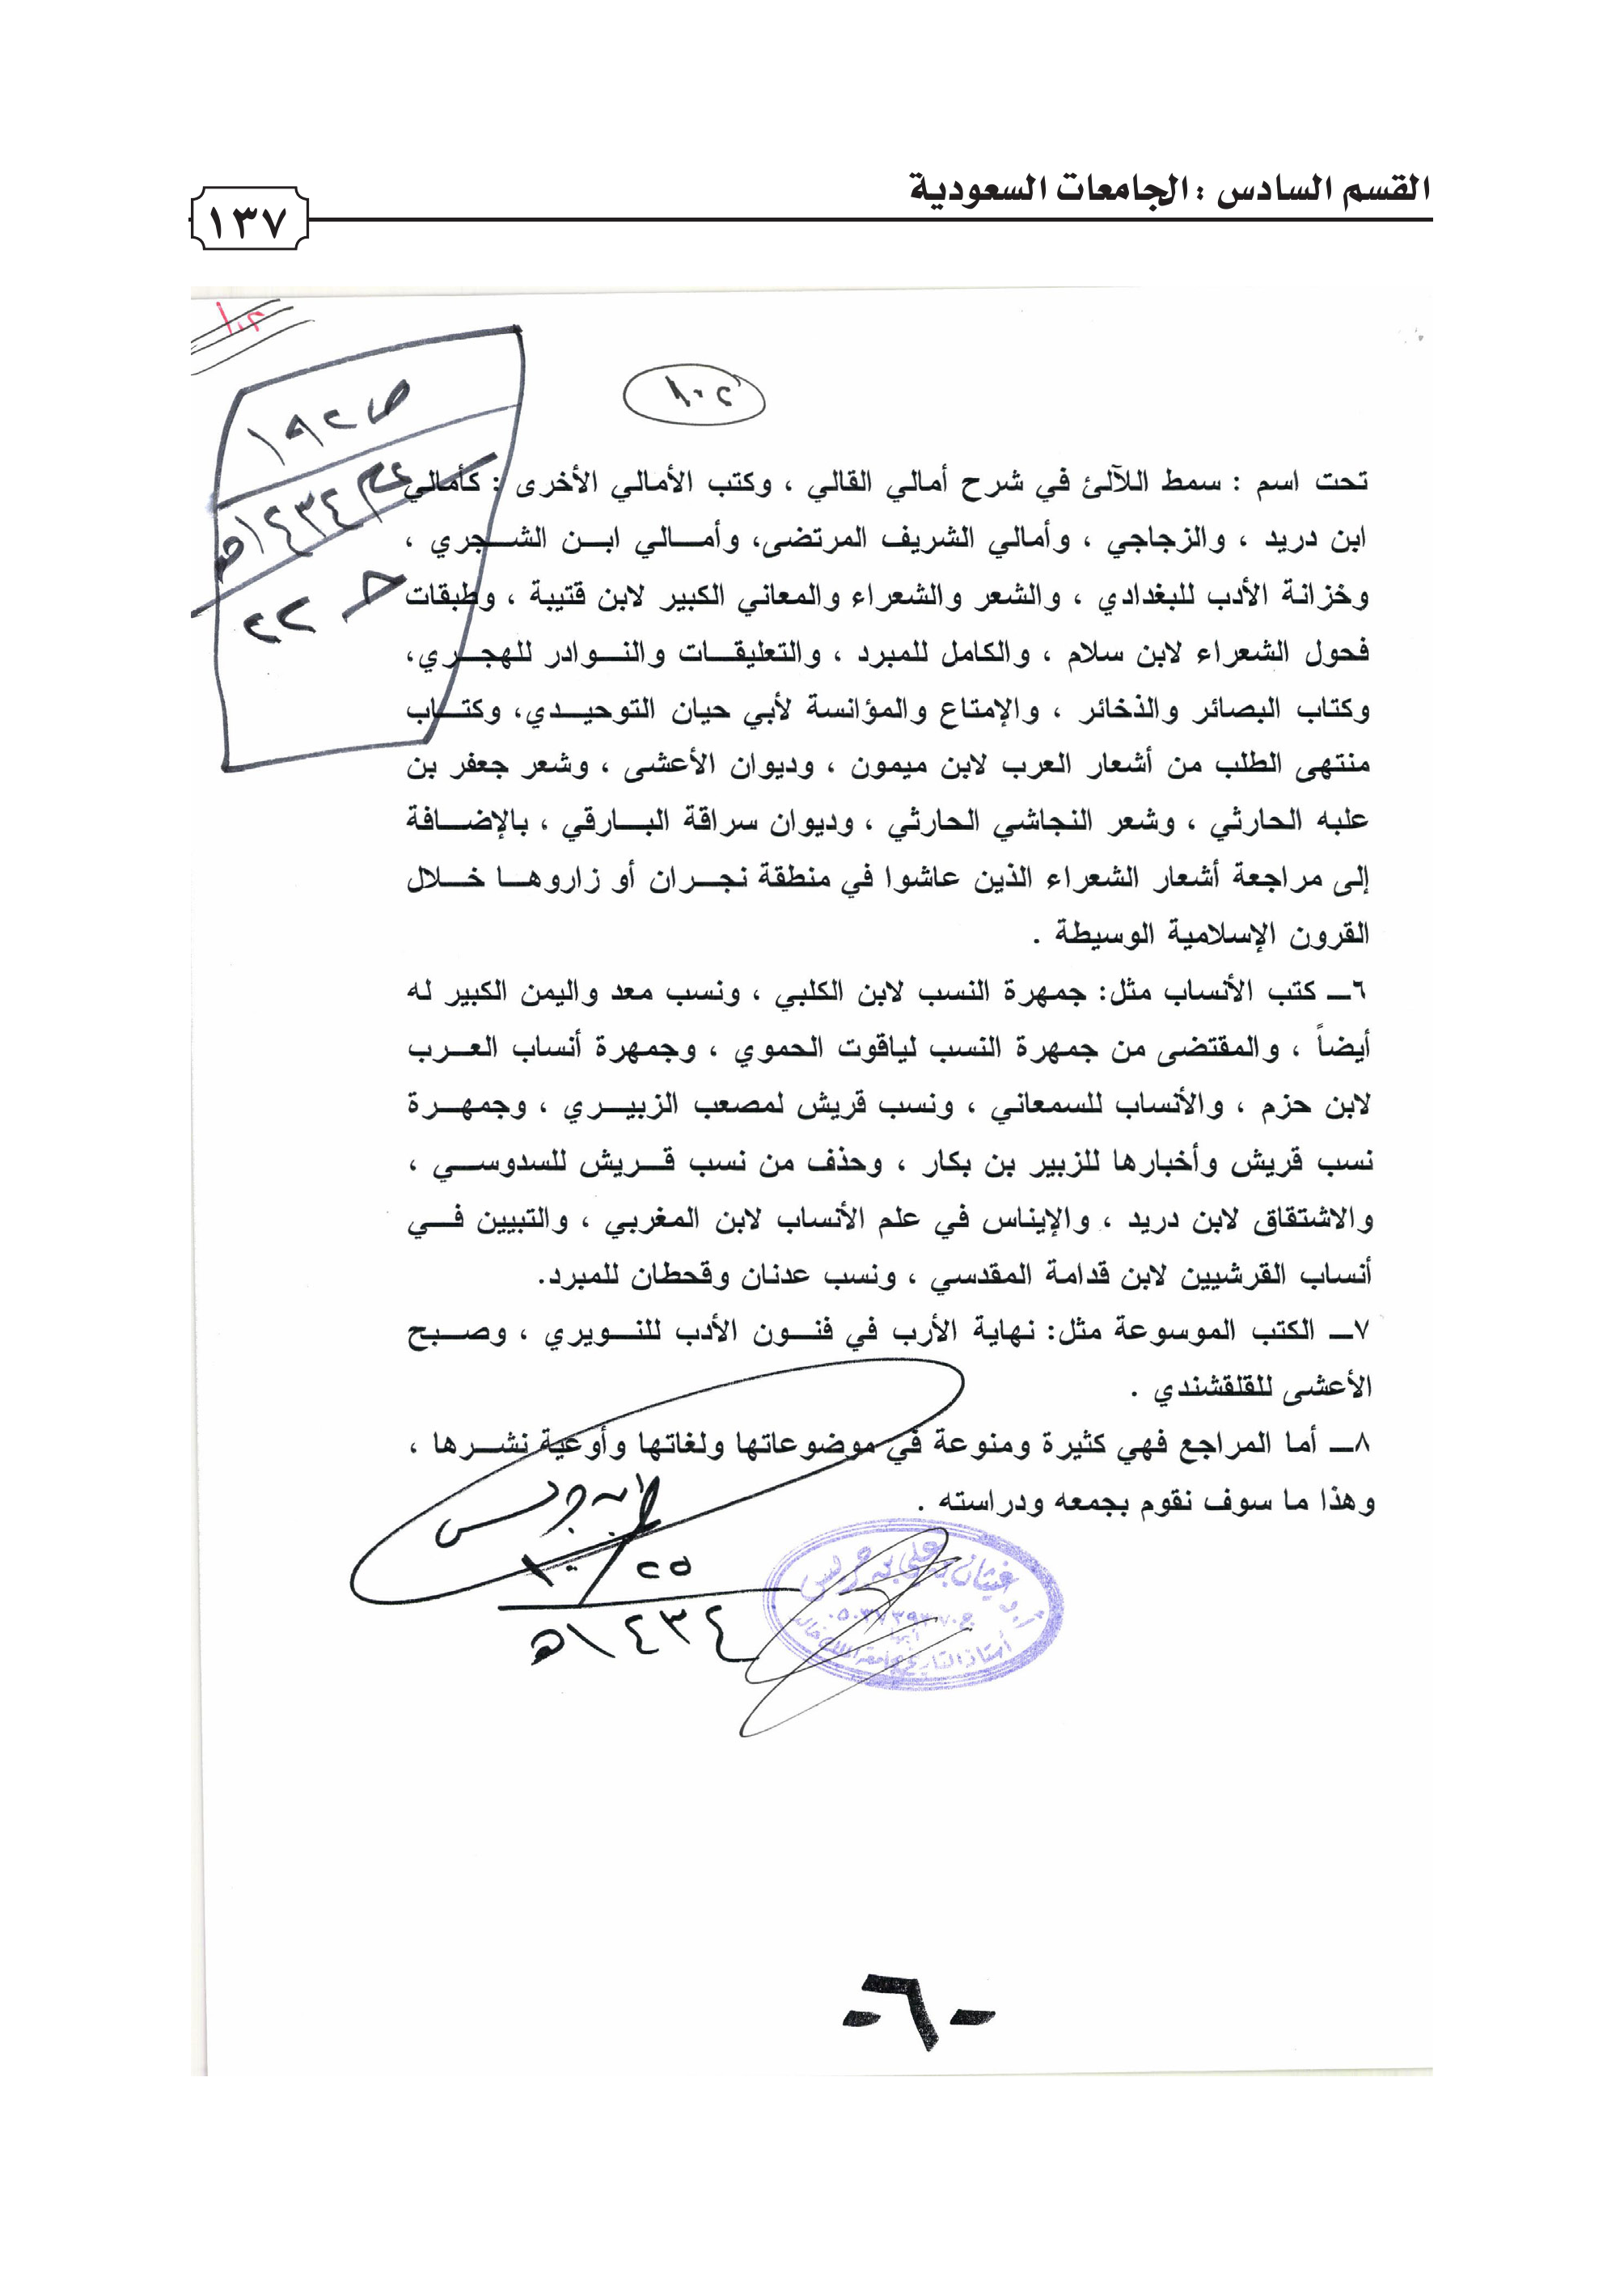 القسم السادس : الجامعات السعودية
١٣٧
ص١٩٢
عام ١٤٣٤هـ
حـ ٢٢
تحت اسم : سمط اللآلئ في شرح أمالي القالي ، وكتب الأمالي الأخرى : كأمالي
ابن دريد ، والزجاجي ، وأمالي الشريف المرتضى، وأمـــالي ابـــن الشـــجري ،
وخزانة الأدب للبغدادي ، والشعر والشعراء والمعاني الكبير لابن قتيبة ، وطبقات
فحول الشعراء لابن سلام ، والكامل للمبرد ، والتعليقـــات والنـــوادر للهجـــري،
وكتاب البصائر والذخائر ، والإمتاع والمؤانسة لأبي حيان التوحيـــدي، وكتـــاب
منتهى الطلب من أشعار العرب لابن ميمون ، وديوان الأعشى ، وشعر جعفر بن
علبه الحارثي ، وشعر النجاشي الحارثي ، وديوان سراقة البـــارقي ، بالإضـــافة
إلى مراجعة أشعار الشعراء الذين عاشوا في منطقة نجـــران أو زاروهـــا خـــلال
القرون الإسلامية الوسيطة .
٦ــ كتب الأنساب مثل: جمهرة النسب لابن الكلبي ، ونسب معد واليمن الكبير له
أيضاً ، والمقتضى من جمهرة النسب لياقوت الحموي ، وجمهرة أنساب العـــرب
لابن حزم ، والأنساب للسمعاني ، ونسب قريش لمصعب الزبيـــري ، وجمهـــرة
نسب قريش وأخبارها للزبير بن بكار ، وحذف من نسب قـــريش للسدوســـي ،
والاشتقاق لابن دريد ، والإيناس في علم الأنساب لابن المغربي ، والتبيين فـــي
أنساب القرشيين لابن قدامة المقدسي ، ونسب عدنان وقحطان للمبرد.
٧ــ الكتب الموسوعة مثل: نهاية الأرب في فنـــون الأدب للنـــويري ، وصـــبح
الأعشى للقلقشندي .
٨ــ أما المراجع فهي كثيرة ومنوعة في موضوعاتها ولغاتها وأوعية نشـــرها ،
وهذا ما سوف نقوم بجمعه ودراسته .
ابن جريس
٢٥/١٠
١٤٣٤هـ
غيثان بن علي بن جريس
أستاذ التاريخ بجامعة الملك خالد
-٦-